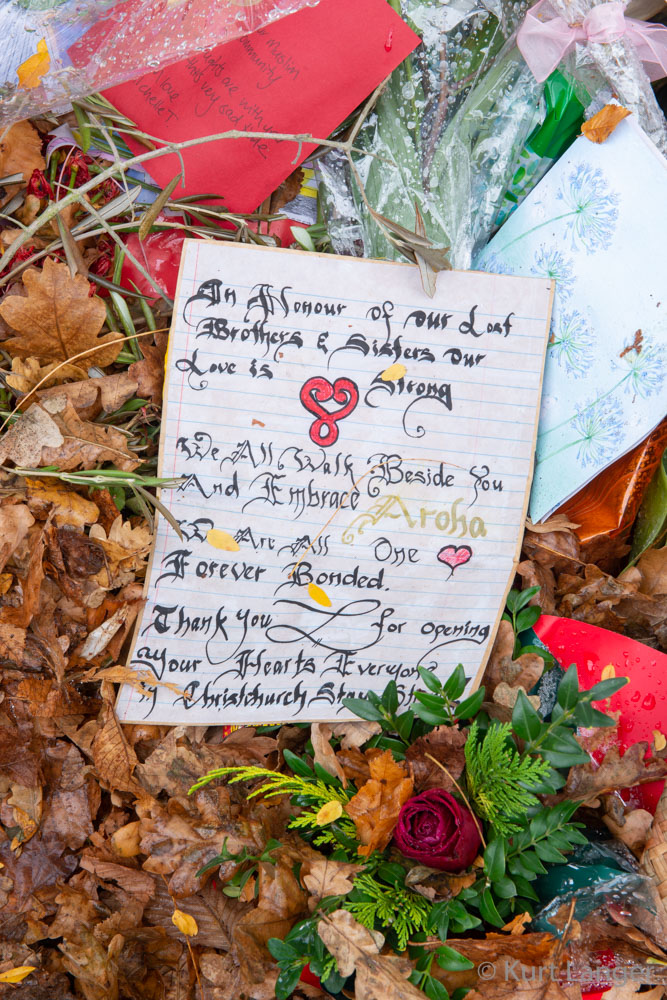 Muslim
community
thoughts are with you
this very sad time.
love
Michelle T
In Honour of Our Lost
Brothers & Sisters Our
Love is Strong
We All Walk Beside You
And Embrace Aroha
We Are All One
Forever Bonded.
Thank You for opening
Your Hearts Everyone
in Christchurch Stay
© Kurt Langer